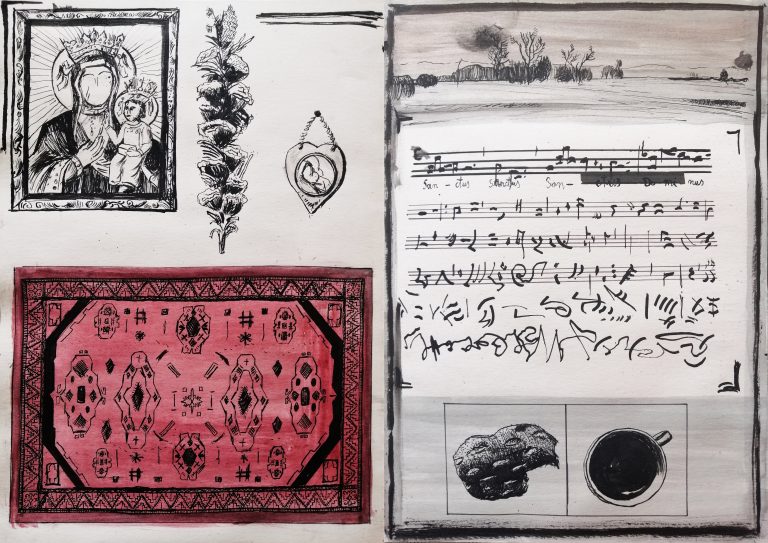 San - ctus Sanctus San- ctus Do mi nus